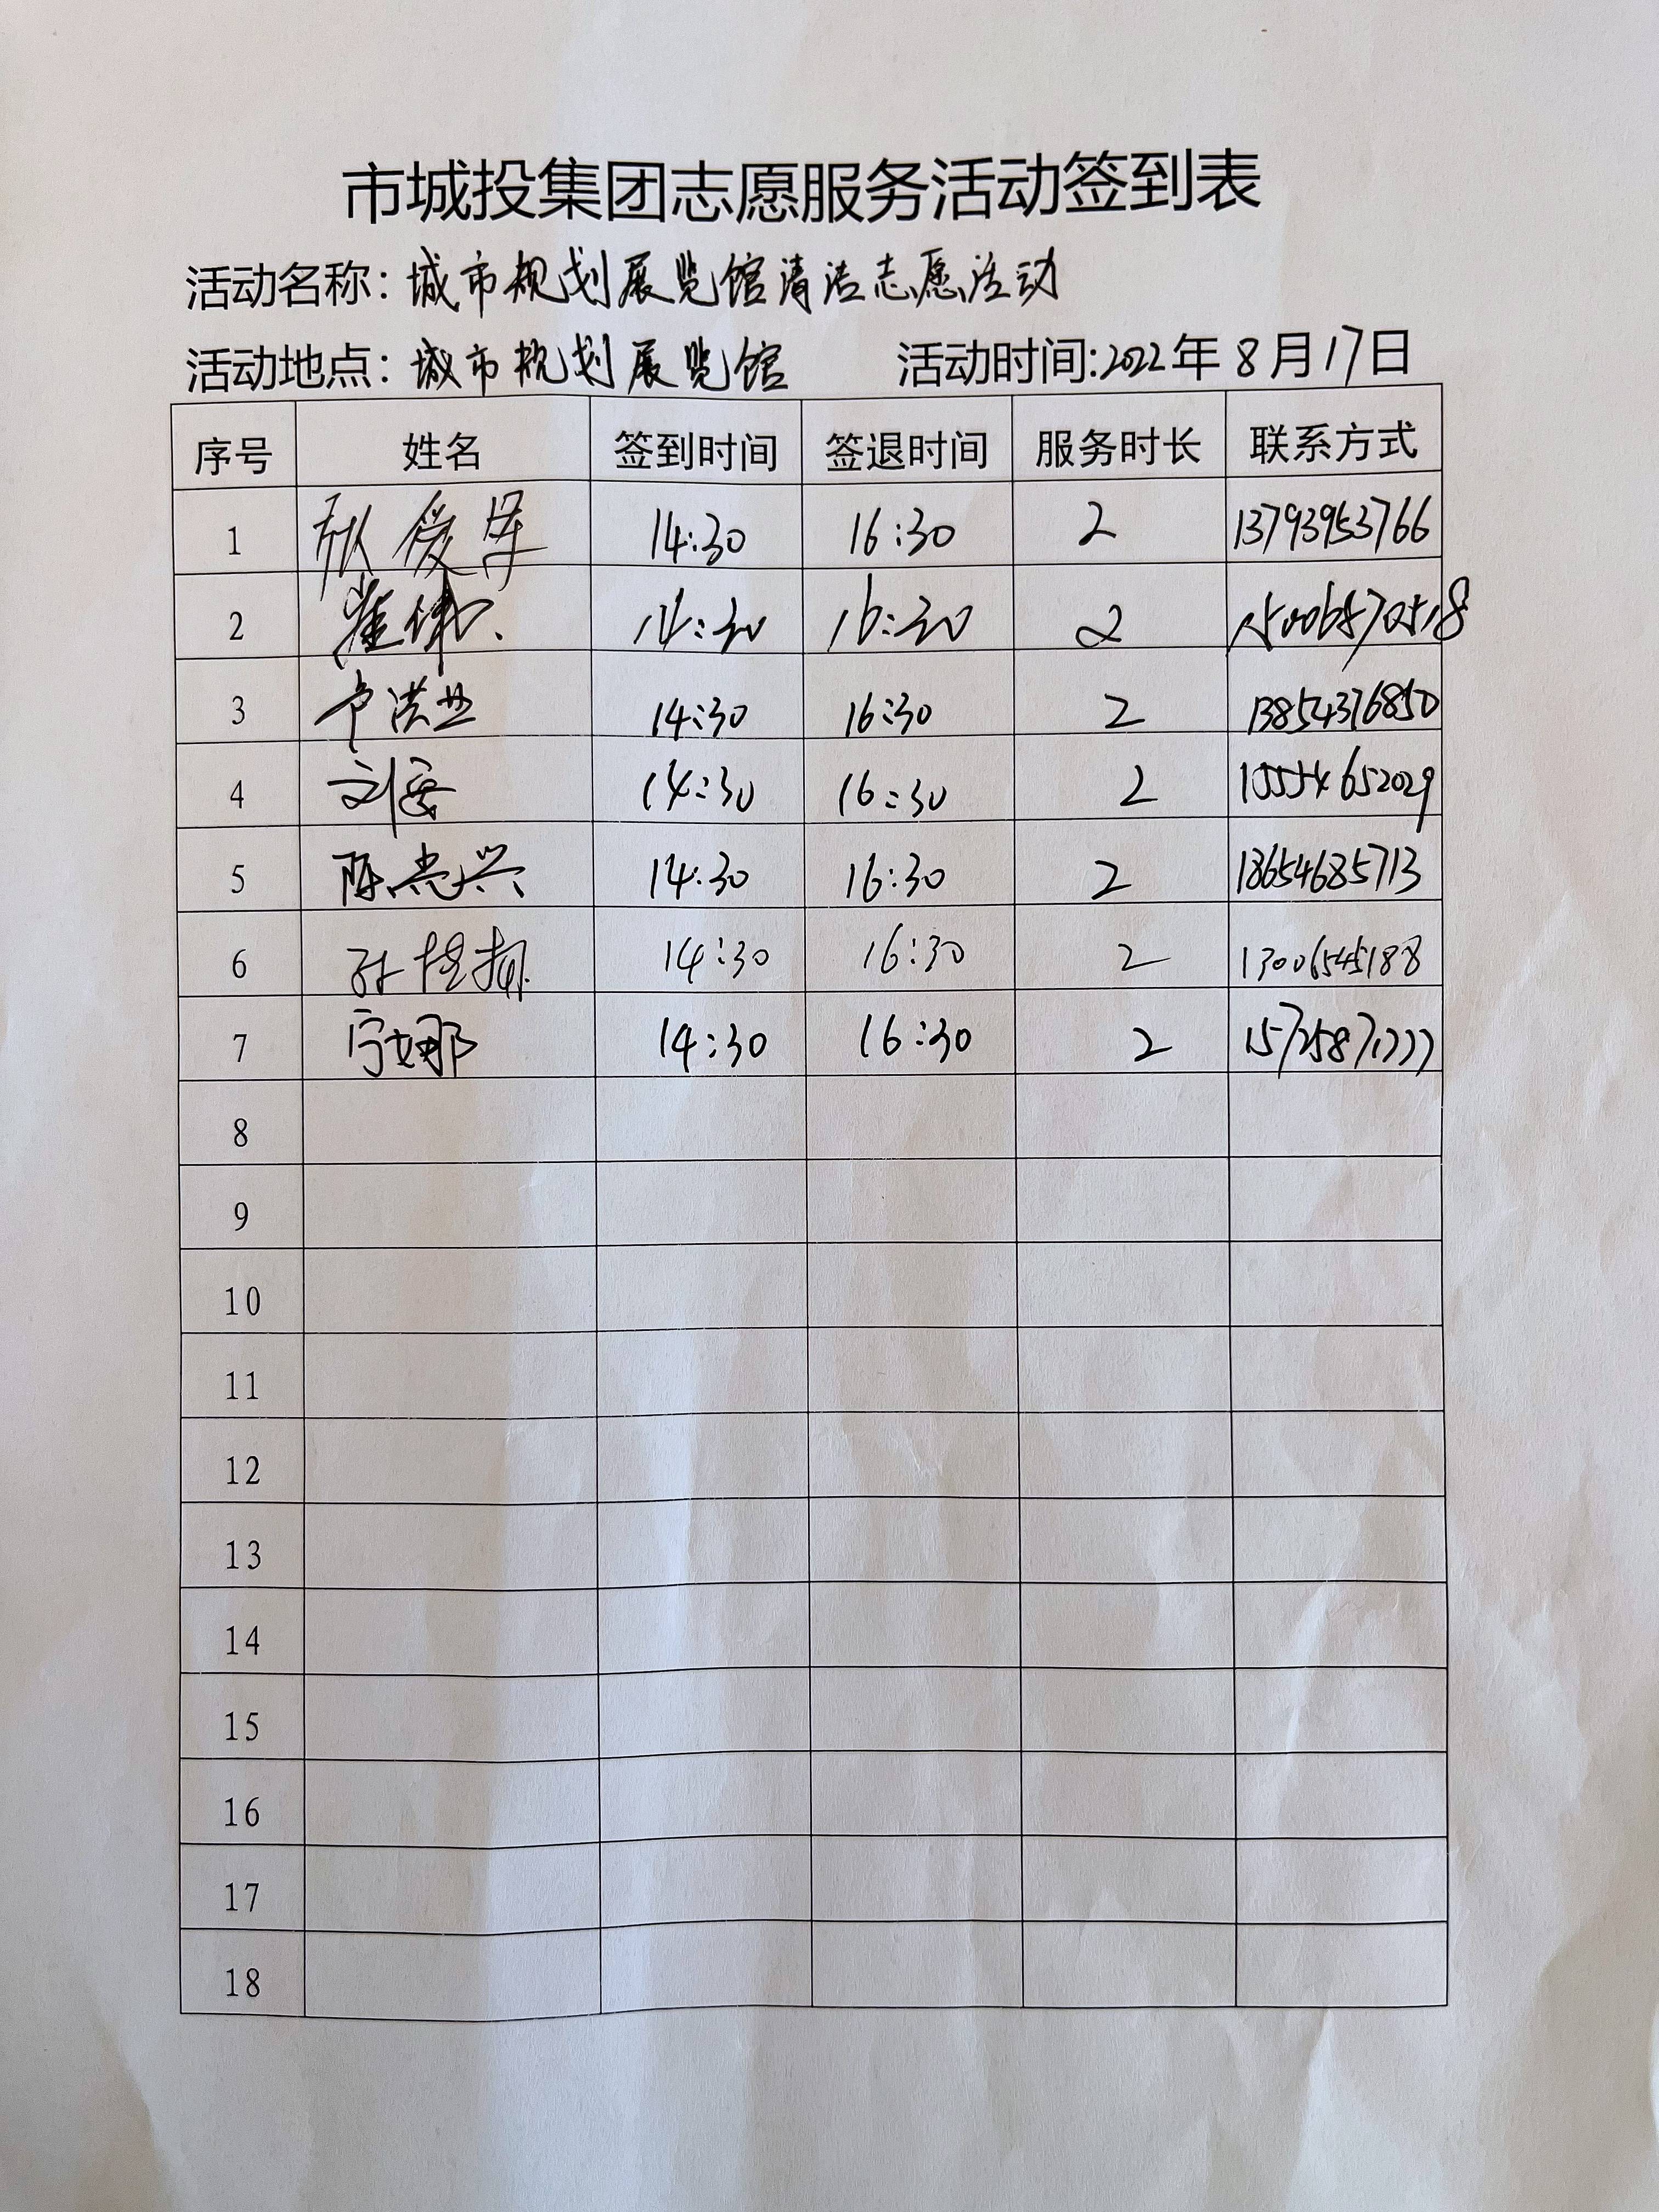 市城投集团志愿服务活动签到表
活动名称：城市规划展览馆清洁志愿活动
活动地点：城市规划展览馆 活动时间:2022年8月17日
序号 姓名 签到时间 签退时间 服务时长 联系方式
1 14:30 16:30 2 13793953766
2 崔伟 14:30 16:30 2
3 卢洪业 14:30 16:30 2 13854376850
4 刘安 14:30 16:30 2 15554652029
5 陈志兴 14:30 16:30 2 18654685713
6 孙 14:30 16:30 2 13006545188
7 宁娜 14:30 16:30 2
8
9
10
11
12
13
14
15
16
17
18